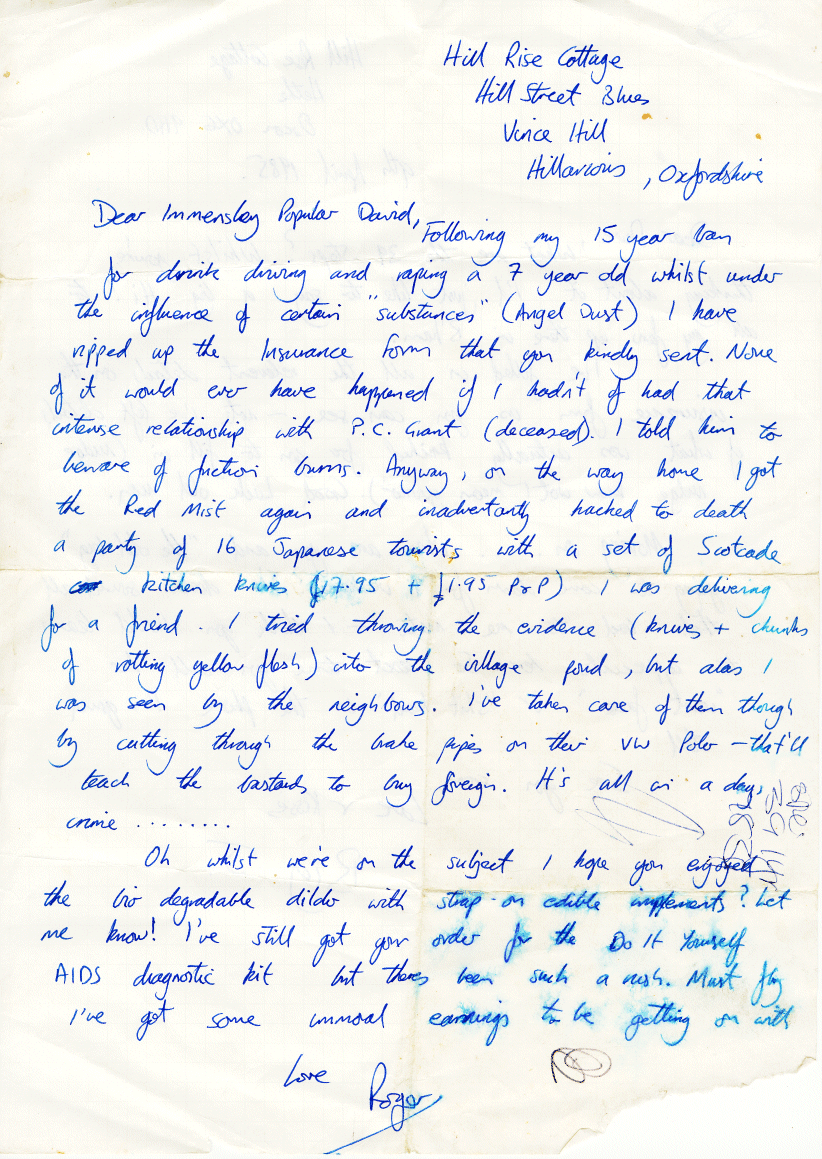 Hill Rise Cottage
Hill Street Blues
Vince Hill
Hillarious, Oxfordshire
Dear Immensley Popular David,
Following my 15 year ban
for drink driving and raping a 7 year old whilst under
the influence of certain "substances" (Angel Dust) I have
ripped up the Insurance form that you kindly sent. None
of it would ever have happened if I hadn't of had that
intense relationship with P.C. Grant (deceased). I told him to
beware of friction burns. Anyway, on the way home I got
the Red Mist again and inadvertantly hacked to death
a party of 16 Japanese tourists with a set of Scotcade
kitchen knives (£7.95 + £1.95 P+P) I was delivering
for a friend. I tried throwing the evidence (knives + chunks
of rotting yellow flesh) into the village pond, but alas I
was seen by the neighbours. I've taken care of them though
by cutting through the brake pipes on their VW Polo - that'll
teach the bastards to buy foreign. It's all in a days
crime ........
Oh whilst we're on the subject I hope you enjoyed
the bio degradable dildo with strap-on edible implements? Let
me know! I've still got your order for the Do It Yourself
AIDS diagnostic kit but theres been such a rush. Must fly
I've got some immoral earnings to be getting on with
Love
Roger